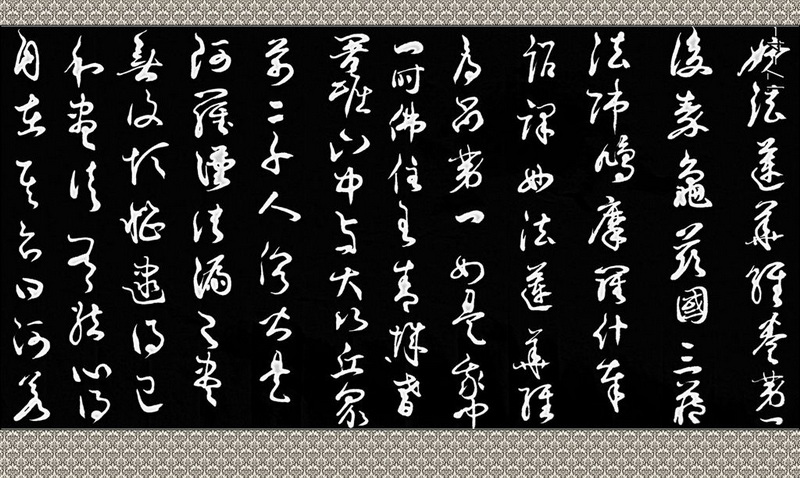 妙法蓮華經卷第一
後秦龜茲國三藏
法師鳩摩羅什奉
詔譯妙法蓮華經
序品第一如是我聞
一時佛住王舍城耆
闍崛山中與大比丘眾
萬二千人俱皆是
阿羅漢諸漏已盡
無復煩惱逮得己
利盡諸有結心得
自在其名曰阿若